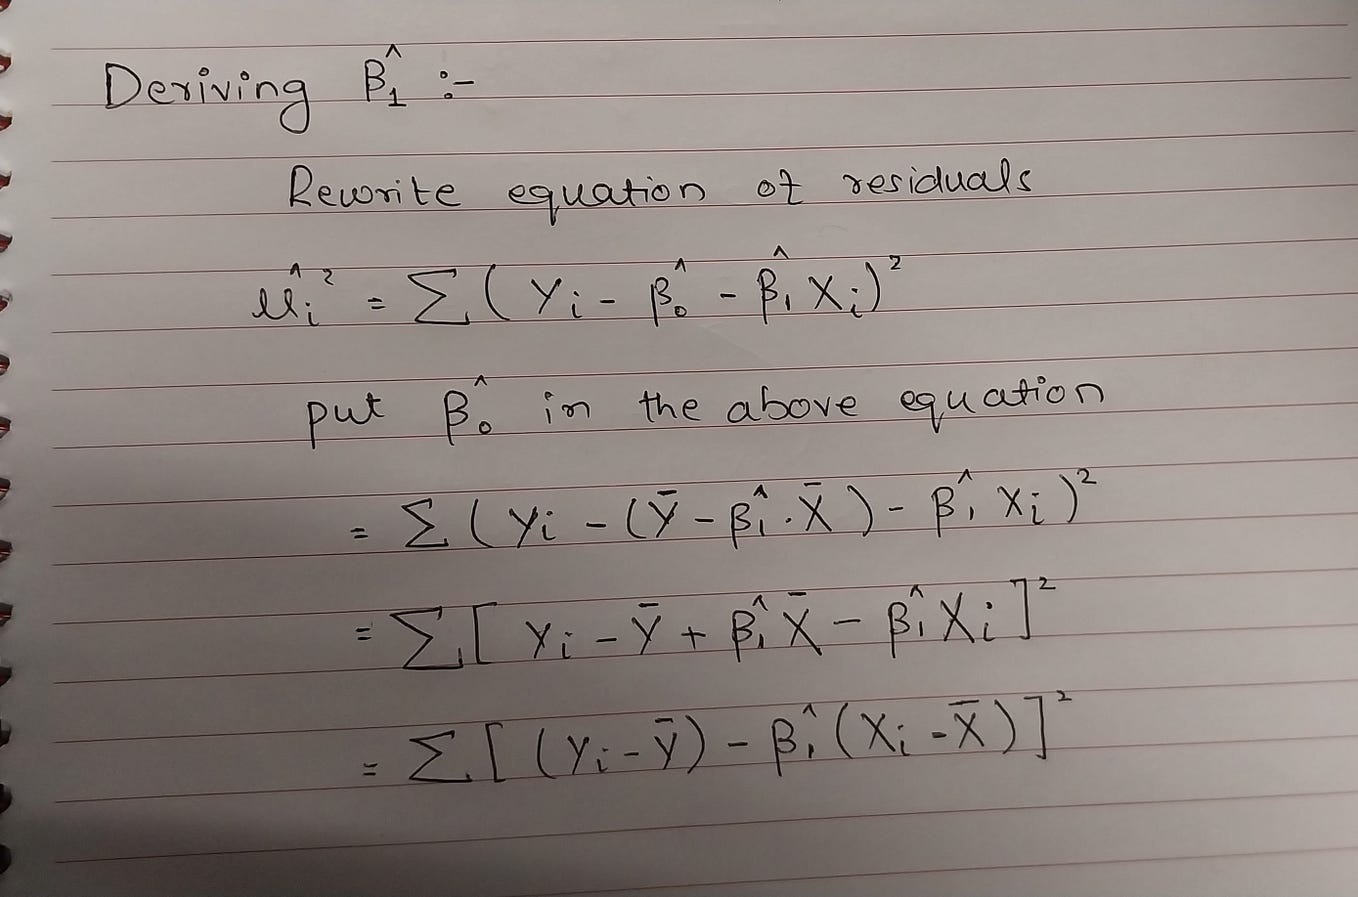 Deriving β̂₁ :-
Rewrite equation of residuals
û_i² = Σ(Yi - β̂₀ - β̂₁ Xi)²
put β̂₀ in the above equation
= Σ(Yi - (Ȳ - β̂₁·X̄) - β̂₁ Xi)²
= Σ[Yi - Ȳ + β̂₁X̄ - β̂₁Xi]²
= Σ[(Yi - Ȳ) - β̂₁(Xi - X̄)]²